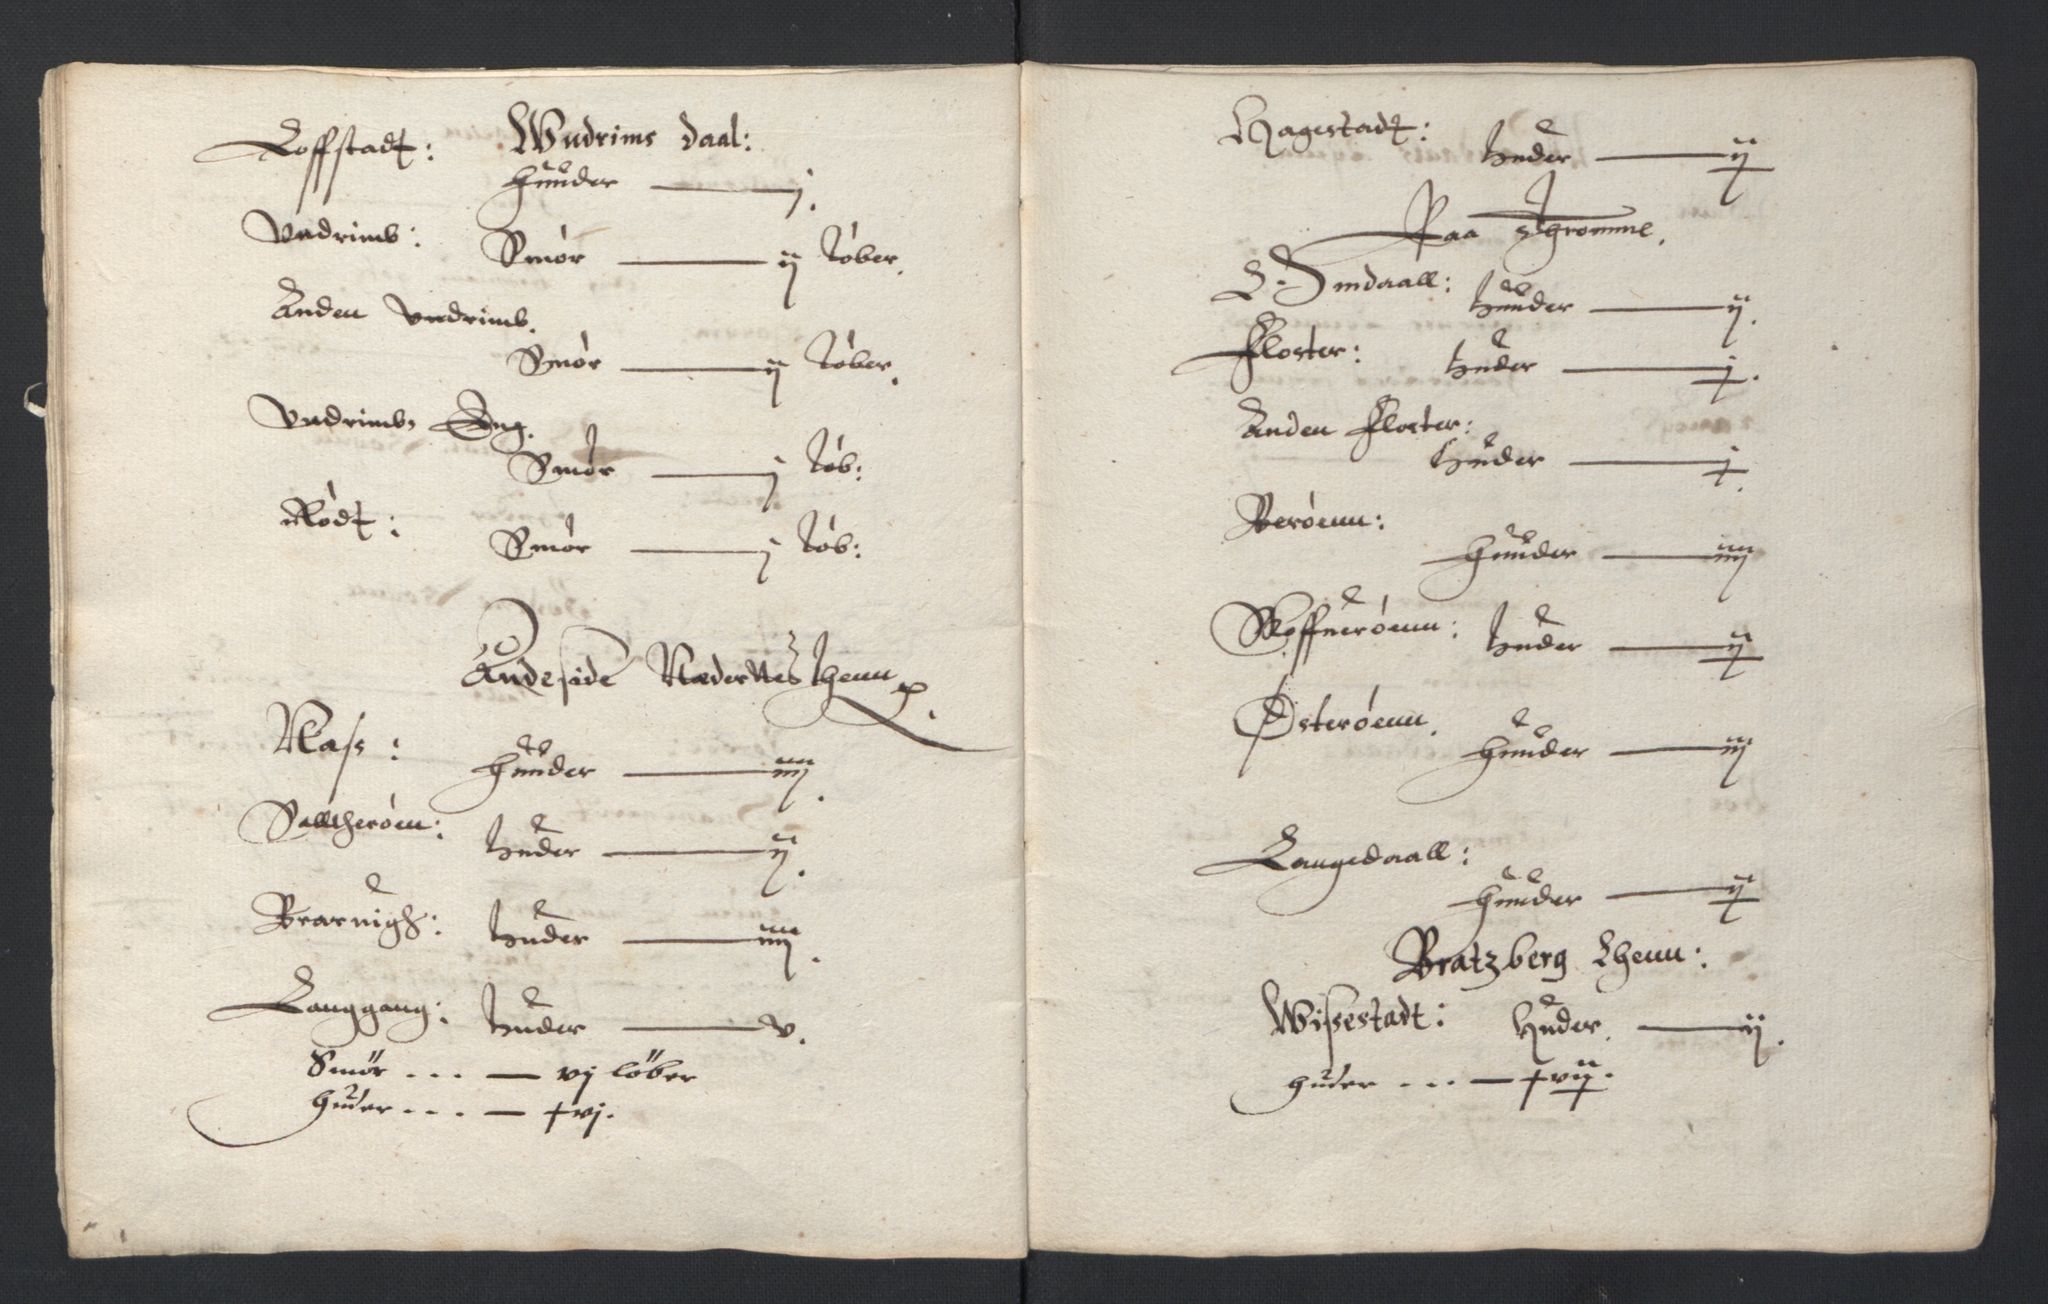 Wndrims daal:
Loffstadt:
Huuder — j.
Vndrimb:
Smör — ij løber.
Anden Vndrimb.
Smör — ij løber.
Vndrimbs Eng.
Smör — j løb:
Rødt:
Smör — j løb:
Andeside Nædernes lhenn
Nass:
Huuder — iiij.
Salltherøen:
Huder — ij.
Brarnigh:
Huder — iiij.
Langgang:
Huder — v.
Smör . . . — vj løber
Huder . . . — xvj.
Hagestadt:
Huder — ij
Paa Stromme.
Omdaall:
Huuder — ij.
Kloster:
Huder — j.
Anden Kloster:
Huder — j.
Berøenn:
Huuder — iiij
Skoffuerøenn:
Huder — ij
Østerøenn.
Huuder — iij
Langedaall:
Huuder — ij
Bratzberg Lhenn:
Wissestadt: Huder. — ij.
Huder . . . — xvij.